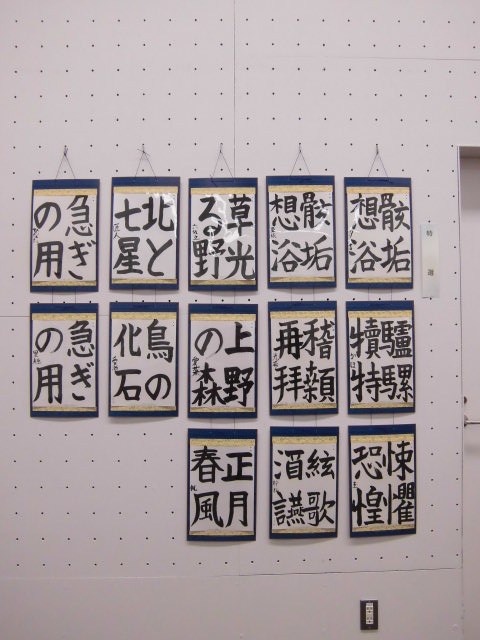 特選
骸垢
想浴
驢騾
犢特
悚懼
恐惶
骸垢
想浴
稽顙
再拝
絃歌
酒讌
草光
る野
上野
の森
正月
春風
北と
七星
鳥の
化石
急ぎ
の用
急ぎ
の用